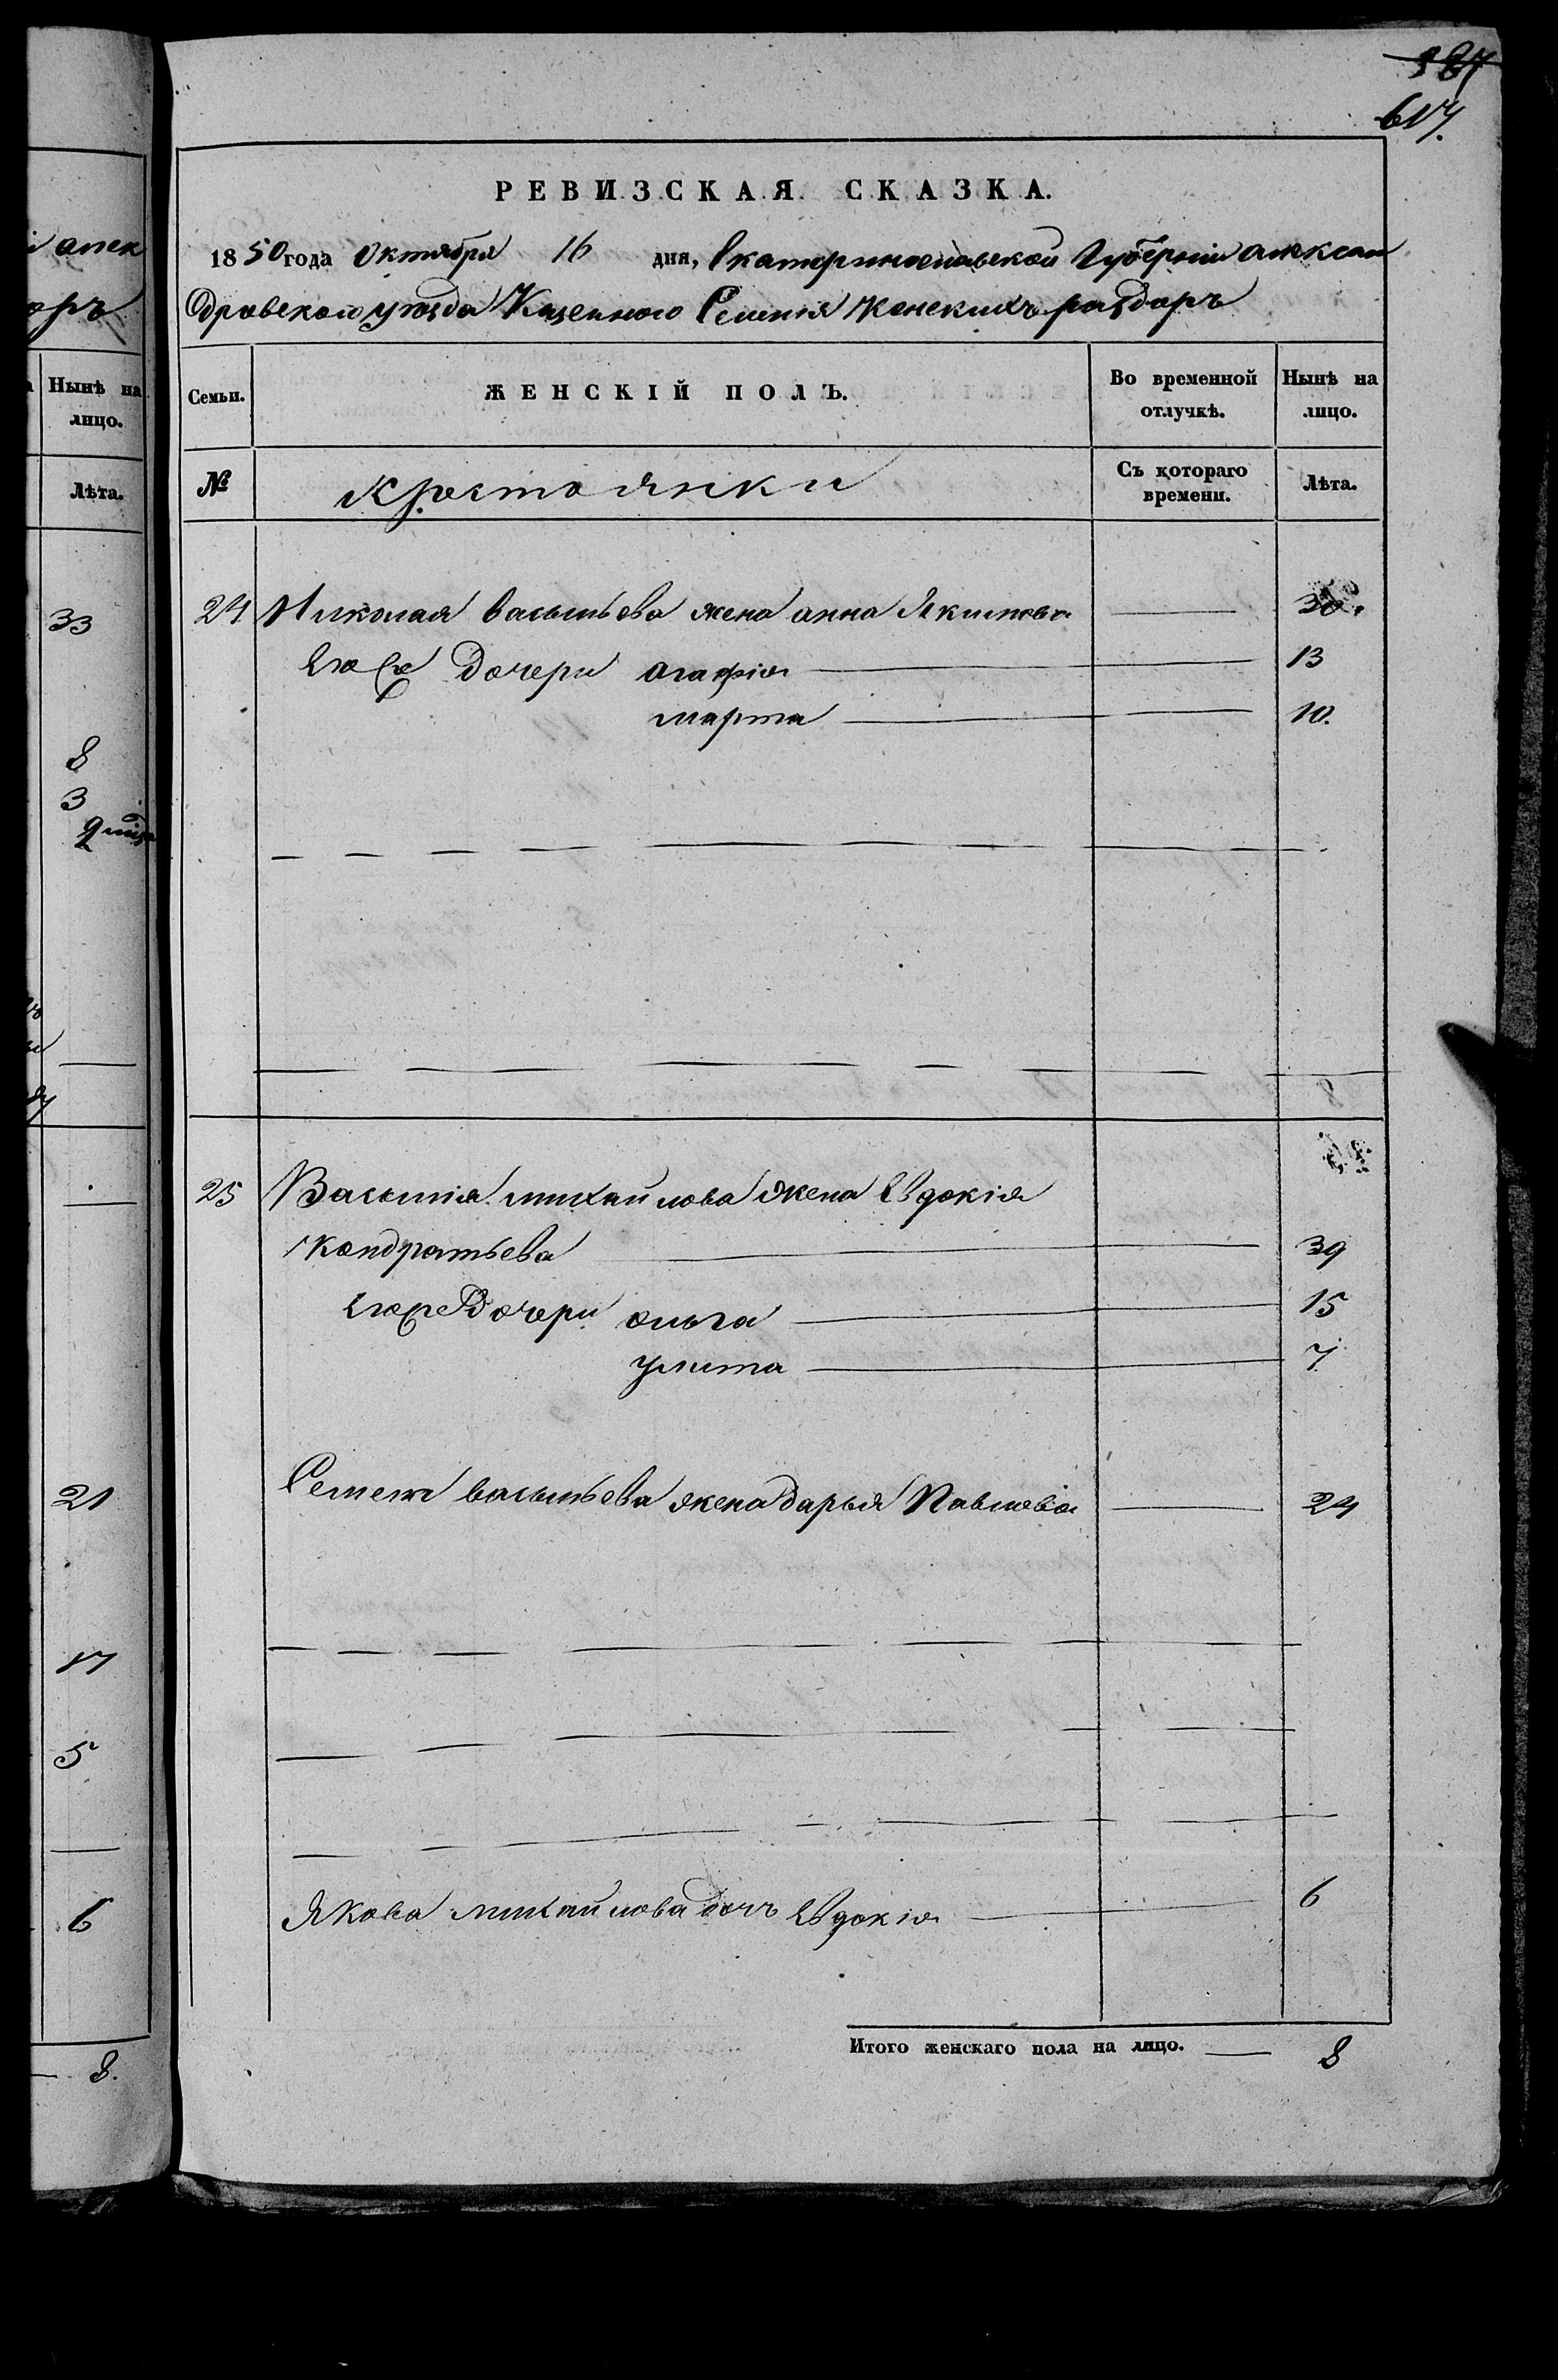 187
617.
РЕВИЗСКАЯ СКАЗКА.
1850 года Октября 16 дня, Екатеринославской Губерніи Алексан
дровского уѣзда Казенного Селенія Женскихъ раздоръ
Семьи. ЖЕНСКІЙ ПОЛЪ. Во временной отлучкѣ. Нынѣ на лицо.
№ Крестьянки Съ котораго времени. Лѣта.
24 Николая Васильева жена Анна Якимова 30.
Дочери Агафія 13
Марта 10.
25 Василія Михайлова жена Евдокія
Кондратьева 39
Дочери Ольга 15
Улита 7.
Семена Васильева жена Дарья Павлова 24
Якова Михайлова дочь Евдокія 6
Итого женскаго пола на лицо. 8
Нынѣ на
лицо.
Лѣта.
33
8
3
21
17
5
6
8.